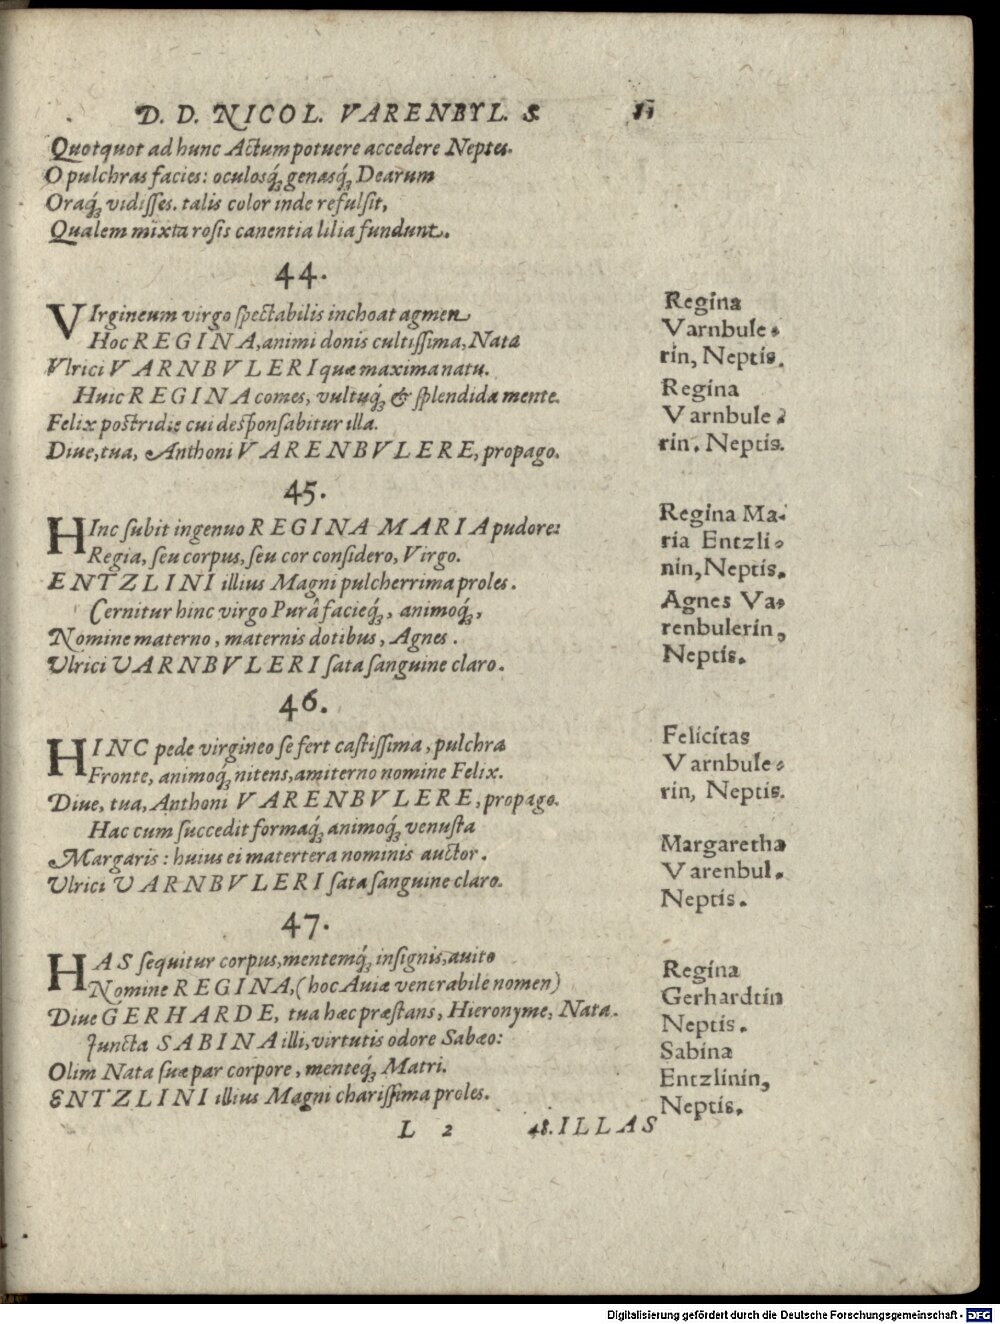 D. D. NICOL. VARENBVL. S.
Quotquot ad hunc Actum potuere accedere Neptes.
O pulchras facies: oculosq́; genasq́; Dearum
Oraq́; vidisses. talis color inde refulsit,
Qualem mixta rosis canentia lilia fundunt.
44.
VIrgineum virgo spectabilis inchoat agmen
Hoc REGINA, animi donis cultissima, Nata
Vlrici VARNBVLERI quæ maxima natu.
Huic REGINA comes, vultuq́; & splendida mente.
Felix postridie cui desponsabitur illa.
Diue, tua, Anthoni VARENBVLERE, propago.
Regina
Varnbule-
rin, Neptis.
Regina
Varnbule-
rin, Neptis.
45.
HInc subit ingenuo REGINA MARIA pudore:
Regia, seu corpus, seu cor considero, Virgo.
ENTZLINI illius Magni pulcherrima proles.
Cernitur hinc virgo Purâ facieq́;, animoq́;,
Nomine materno, maternis dotibus, Agnes.
Vlrici VARNBVLERI sata sanguine claro.
Regina Ma-
ria Entzli-
nin, Neptis.
Agnes Va-
renbulerin,
Neptis.
46.
HINC pede virgineo se fert castissima, pulchra
Fronte, animoq́; nitens, amiterno nomine Felix.
Diue, tua, Anthoni VARENBVLERE, propago.
Hac cum succedit formaq́; animoq́; venusta
Margaris: huius ei matertera nominis auctor.
Vlrici VARNBVLERI sata sanguine claro.
Felicitas
Varnbule-
rin, Neptis.
Margaretha
Varenbul.
Neptis.
47.
HAS sequitur corpus, mentemq́; insignis, auito
Nomine REGINA, (hoc Auiæ venerabile nomen)
Diue GERHARDE, tua hæc præstans, Hieronyme, Nata.
Juncta SABINA illi, virtutis odore Sabæo:
Olim Nata suæ par corpore, menteq́; Matri.
ENTZLINI illius Magni charissima proles.
Regina
Gerhardtin
Neptis.
Sabina
Entzlinin,
Neptis.
L 2 48. ILLAS
Digitalisierung gefördert durch die Deutsche Forschungsgemeinschaft - DFG